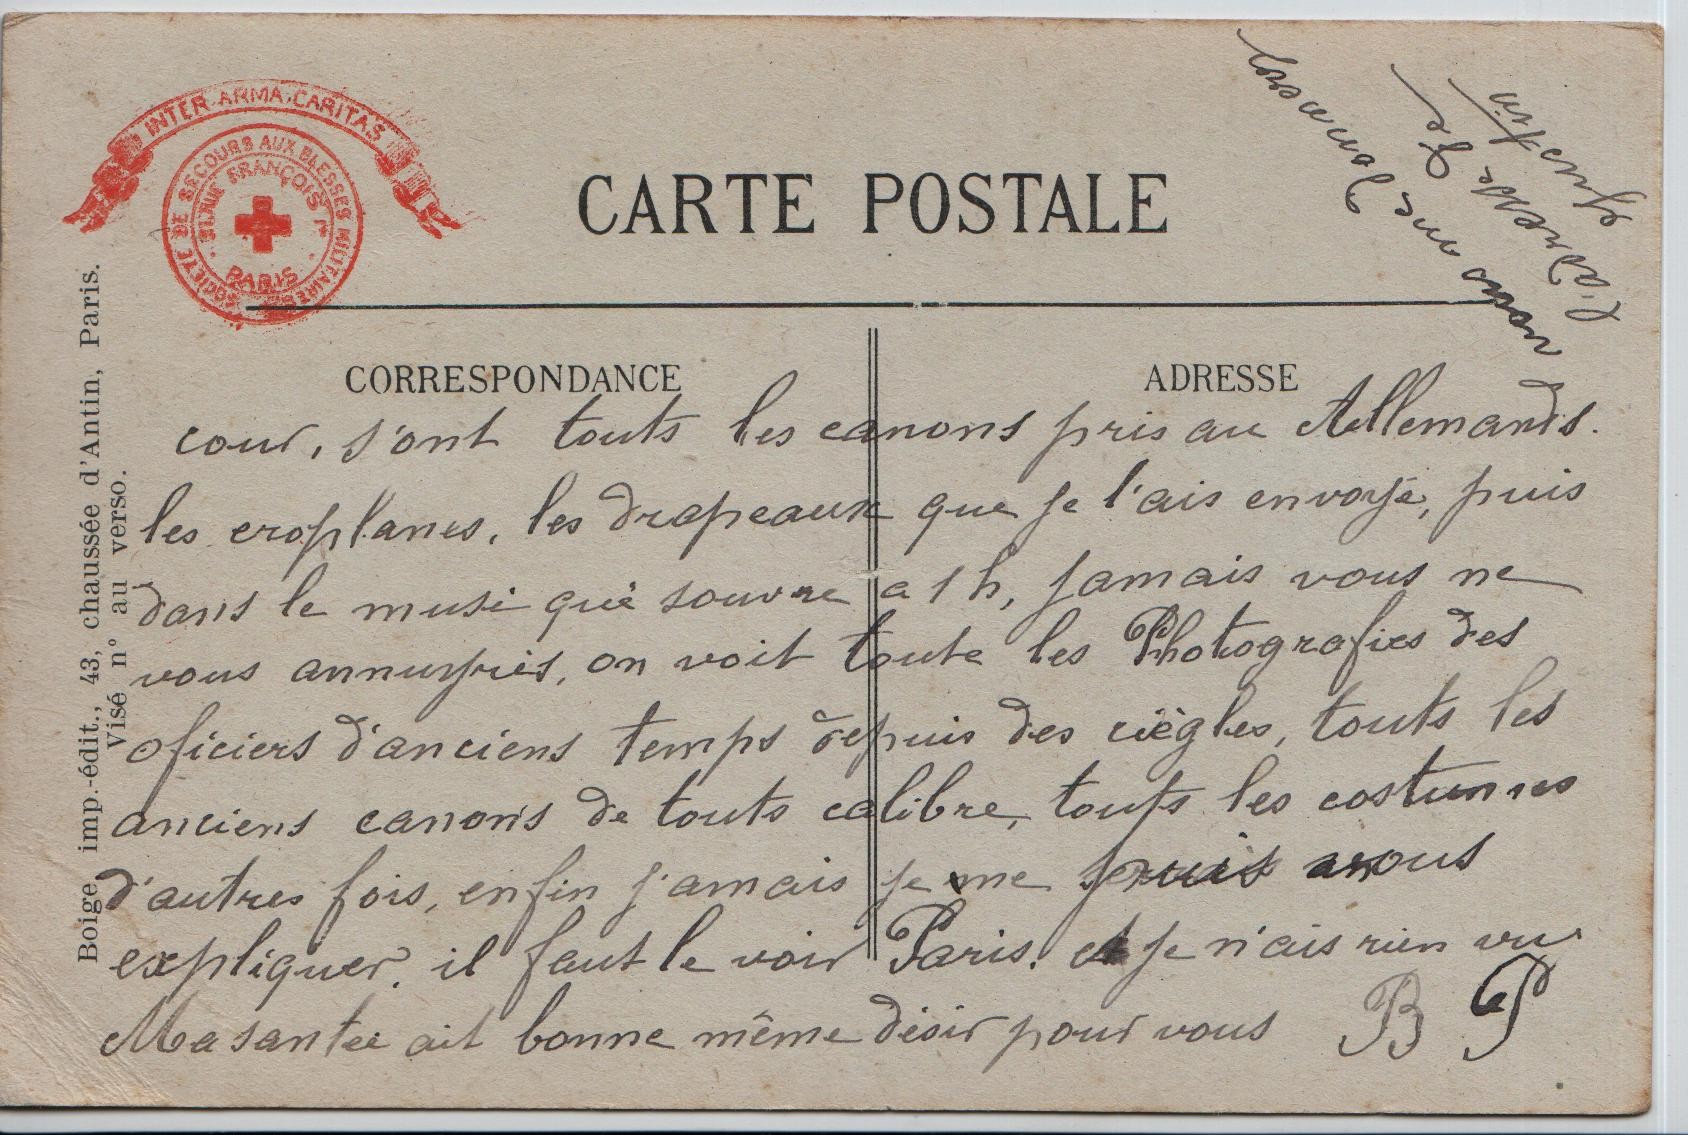 INTER ARMA CARITAS
SOCIÉTÉ DE SECOURS AUX BLESSÉS MILITAIRES
51, RUE FRANÇOIS Ier
PARIS
CARTE POSTALE
CORRESPONDANCE
ADRESSE
Boige imp.-édit., 43, chaussée d'Antin, Paris.
Visé n° au verso.
vous me donnerez
l'adresse de
Gustin
cour, s'ont touts les canons pris au Allemands.
les eroplanes, les drapeaux que je l'ais envoyé, puis
dans le musé qui souvre a 1 h, jamais vous ne
vous annuyriés, on voit toute les Photografies des
oficiers d'anciens temps depuis des ciègles, touts les
anciens canons de touts calibre, touts les costumes
d'autres fois, enfin j'amais je me vous
expliquer, il faut le voir Paris. et je n'ais rien vu
Ma santée ait bonne même désir pour vous B P